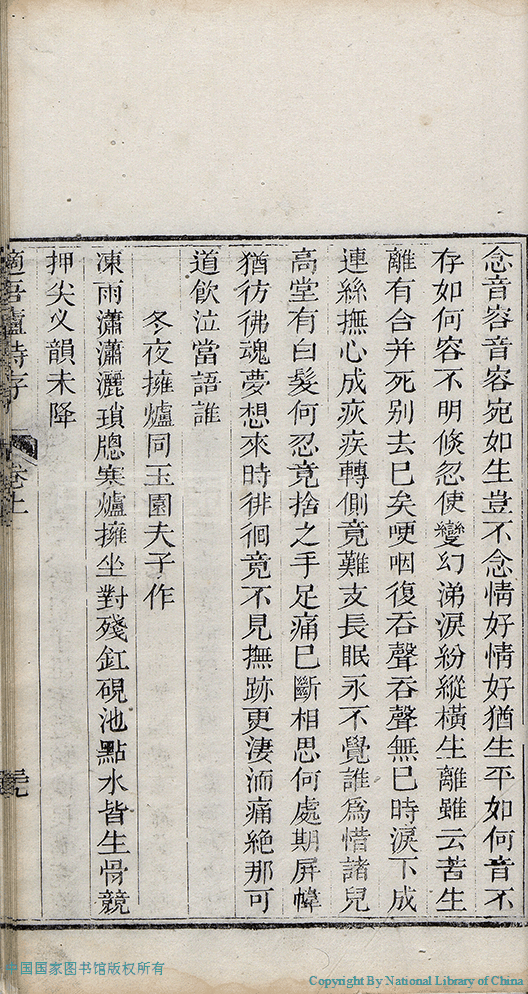 念音容音容宛如生豈不念情好情好猶生平如何音不
存如何容不明倏忽使變幻涕淚紛縱橫生離雖云苦生
離有合并死別去已矣哽咽復吞聲吞聲無已時淚下成
連絲撫心成疢疾轉側竟難支長眠永不覺誰為惜諸兒
高堂有白髮何忍竟捨之手足痛已斷相思何處期屏幃
猶彷彿魂夢想來時徘徊竟不見撫跡更淒洏痛絕那可
道飲泣當語誰
冬夜擁爐同玉園夫子作
凍雨瀟瀟灑瑣牕寒爐擁坐對殘釭硯池點水皆生骨競
押尖叉韻未降
適吾廬詩存 卷上
中国国家图书馆版权所有
Copyright By National Library of China